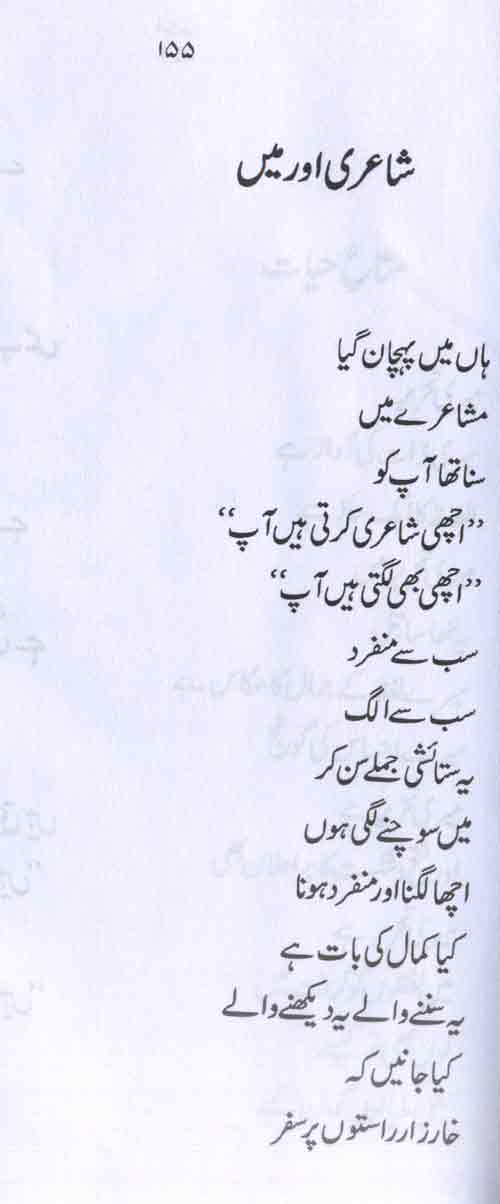 ۱۵۵
شاعری اور میں
ہاں میں پہچان گیا
مشاعرے میں
سنا تھا آپ کو
”اچھی شاعری کرتی ہیں آپ“
”اچھی بھی لگتی ہیں آپ“
سب سے منفرد
سب سے الگ
یہ ستائشی جملے سن کر
میں سوچنے لگی ہوں
اچھا لگنا اور منفرد ہونا
کیا کمال کی بات ہے
یہ سننے والے یہ دیکھنے والے
کیا جانیں کہ
خارزار راستوں پر سفر